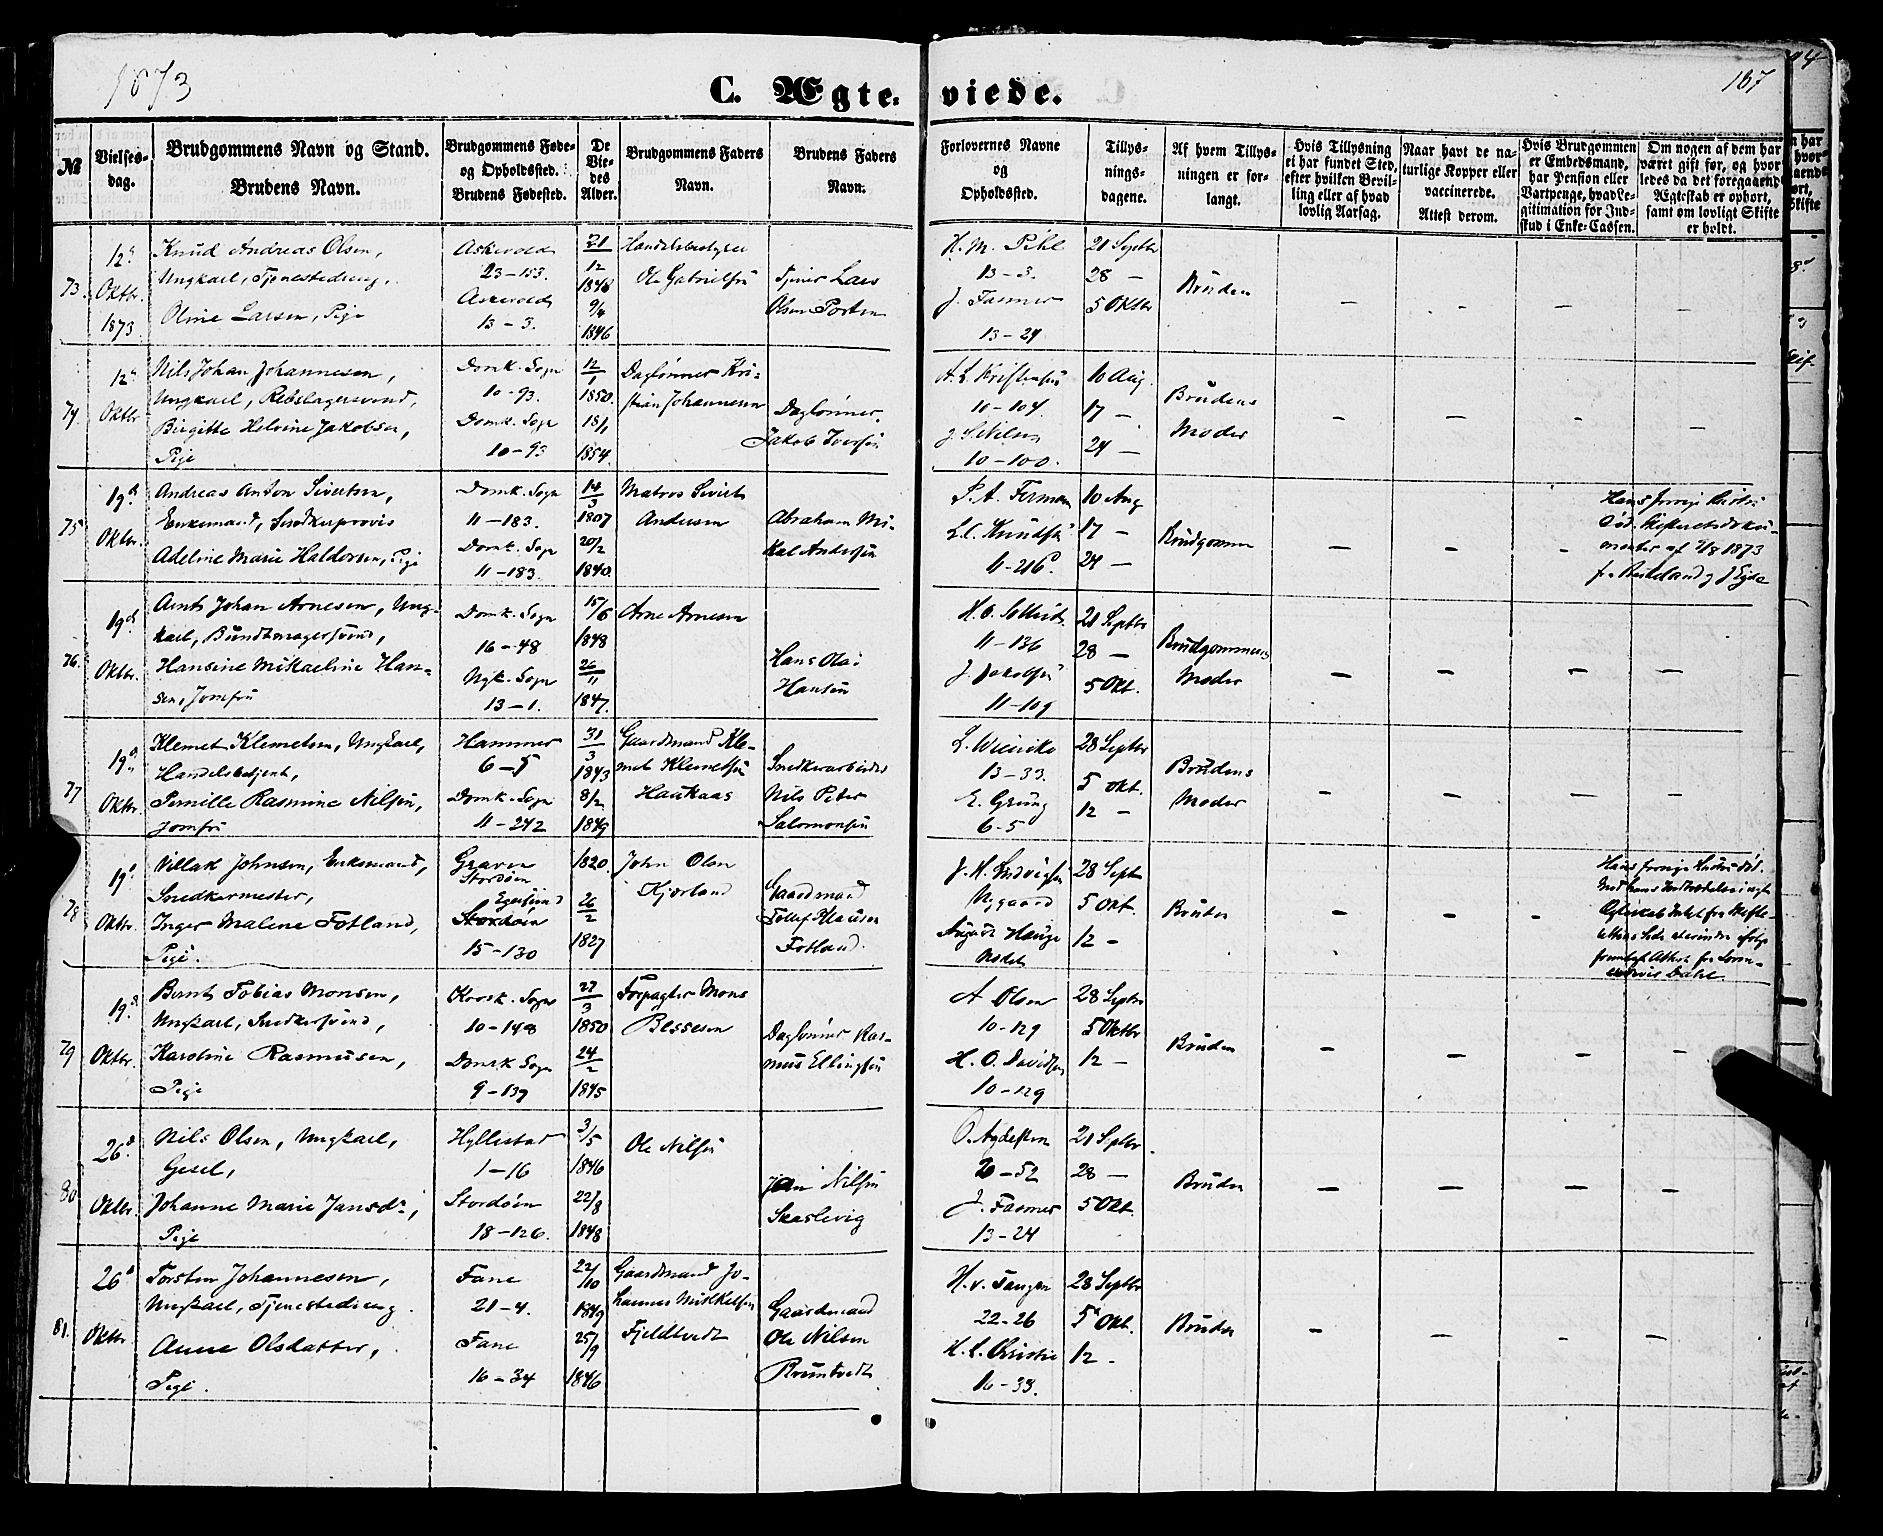 1873
C. Ægte-viede.
167
№
Vielses-
dag.
Brudgommens Navn og Stand.
Brudens Navn.
Brudgommens Føde-
og Opholdssted.
Brudens Fødested.
De
Vie-
des
Alder.
Brudgommens Faders
Navn.
Brudens Faders
Navn.
Forlovernes Navne
og
Opholdssted.
Tillys-
nings-
dagene.
Af hvem Tillys-
ningen er for-
langt.
Hvis Tillysning
ei har fundet Sted,
efter hvilken Bevil-
ling eller af hvad
lovlig Aarsag.
Naar havt de na-
turlige Kopper eller
vaccinerede.
Attest derom.
Hvis Brudgommen
er Embedsmand,
har Pension eller
Vartpenge, hvad Le-
gitimation for Ind-
skud i Enke-Cassen.
Om nogen af dem har
været gift før, og hvor-
ledes da det foregaaende
Ægteskab er ophørt,
samt om lovligt Skifte
er holdt.
73.
12
Oktbr.
1873
Knud Andreas Olsen,
Ungkarl, Tjenestedreng,
Oline Larsen, Pige
Askevold
23-153.
Askevold
13-3.
31
12
1848
9/4
1846
Ole Gabrielsen
Lars
Olsen
H. M. Pihl
13-3.
J. Fasmer
13-24
21 Septbr
28 —
5 Oktbr
Bruden
74.
12
Oktbr
Nils Johan Johannesen,
Ungkarl, Rebslagersvend,
Birgitte Helvine Jakobsen,
Pige
Domk. Sogn
10-93.
Domk. Sogn
10-93
12
1
1850.
18/1
1854.
Daglønner Kri-
stian Johannesen
Daglønner
Jakob Iversen
A. L. Kristensen
10-104
J. S. Nilsen
10-100.
10 Aug.
17 —
24 —
Brudens
Moder
75
19
Oktbr.
Andreas Anton Sivertsen,
Enkemand, Snedkersvend
Adeline Marie Haldorsen, Pige
Domk. Sogn
11-183.
Domk. Sogn
11-183.
14
3
1807
20/2
1840.
Matros Sivert
Andersen
Abraham Mi-
kal Andersen
L. C. Knudsen
10 Aug
17 —
24 —
Brudgommen
76.
19
Oktbr.
Arnt Johan Arnesen, Ung-
karl, Bundtmagersvend,
Hansine Mikaeline Han-
sen, Jomfru
Domk. Sogn
16-48
Nyk. Sogn
13-1.
15/6
1848
26
11
1847.
Arne Arnesen
Hans Olai
Hansen
11-136
J. Jakobsen
11-109
21 Septbr
28 —
5 Okt.
Brudgommens
Moder
77
19
Oktbr.
Klemet Klemetsen, Ungkarl,
Handelsbetjent,
Pernille Rasmine Nilsen,
Jomfru
Hammer
6-5
Domk. Sogn
11-242
31
3
1843
8/2
1849
Gaardmand Kle-
met Klemetsen
Haukaas
Snedkerarbeider
Nils Peter
Salomonsen
L. Wiencke
13-33
E. Grung
6-5
28 Septbr
5 Okt.
12 —
Brudens
Moder
78
19
Oktbr.
Villak Johnsen, Enkemand,
Snedkermester,
Inger Malene Fotland,
Pige.
Graven
Stordøen
Egersund
Stordøen
15-130
1820.
26
2
1827
John Olsen
Kjerland
Gaardmand
Tollef Klausen
Fotland.
Nygaard
August Hauge
Nodet
28 Sept
5 Okt.
12 —
Bruden
79
19
Oktbr.
Bernt Tobias Monsen,
Ungkarl, Snedkersvend,
Karoline Rasmusen,
Pige
Korsk. Sogn
10-148
Domk Sogn
9-139
27
3
1850
24
2
1845
Forpagter Mons
Bessesen
Daglønner Ras-
mus Ellingsen
A Olsen
10-129
H. O. Davidsen
10-129
28 Septbr
5 Oktbr
12 —
Bruden
80
26
Oktbr.
Nils Olsen, Ungkarl,
Gesel,
Johanne Marie Jansdr,
Pige
Hyllestad
1-16
Stordøen
18-126.
3/5
1846
22/8
1848
Ole Nilsen
Jan Nilsen
Saaslevig
20-52
J. Fasmer
13-24
21 Septbr
28 —
5 Okt.
Bruden
81.
26
Oktbr.
Torsten Johannesen,
Ungkarl, Tjenestedreng.
Anne Olsdatter,
Pige.
Fane
21-4.
Fane
16-34
22/10
1849
25/9
1846
Gaardmand Jo-
hannes Mikkelsen
Fjeldtvedt
Gaardmand
Ole Nilsen
H. v. Tangen
22-26
H. C. Christie
16-33.
28 Septbr
5 Okt.
12 -
Bruden